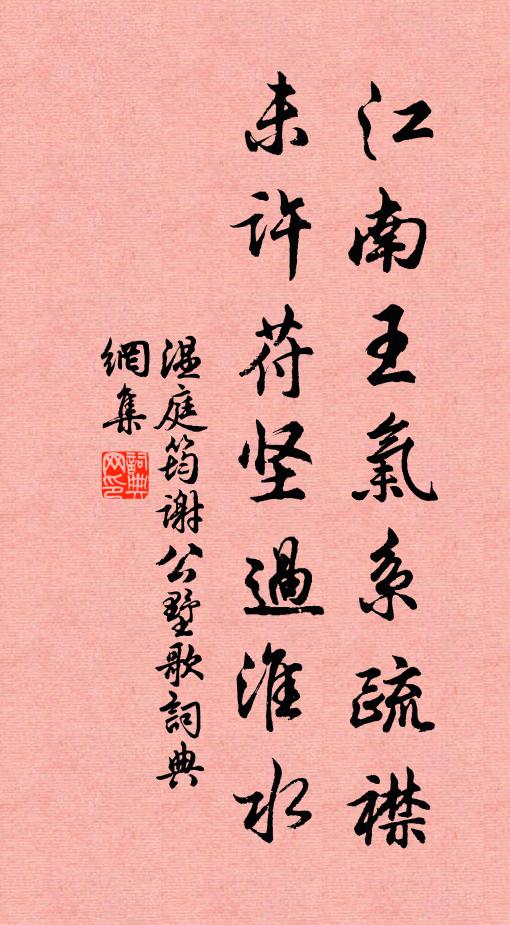 江南王氣系疏襟
未許苻坚過淮水
温庭筠謝公墅歌詞典
網集
詞典網印